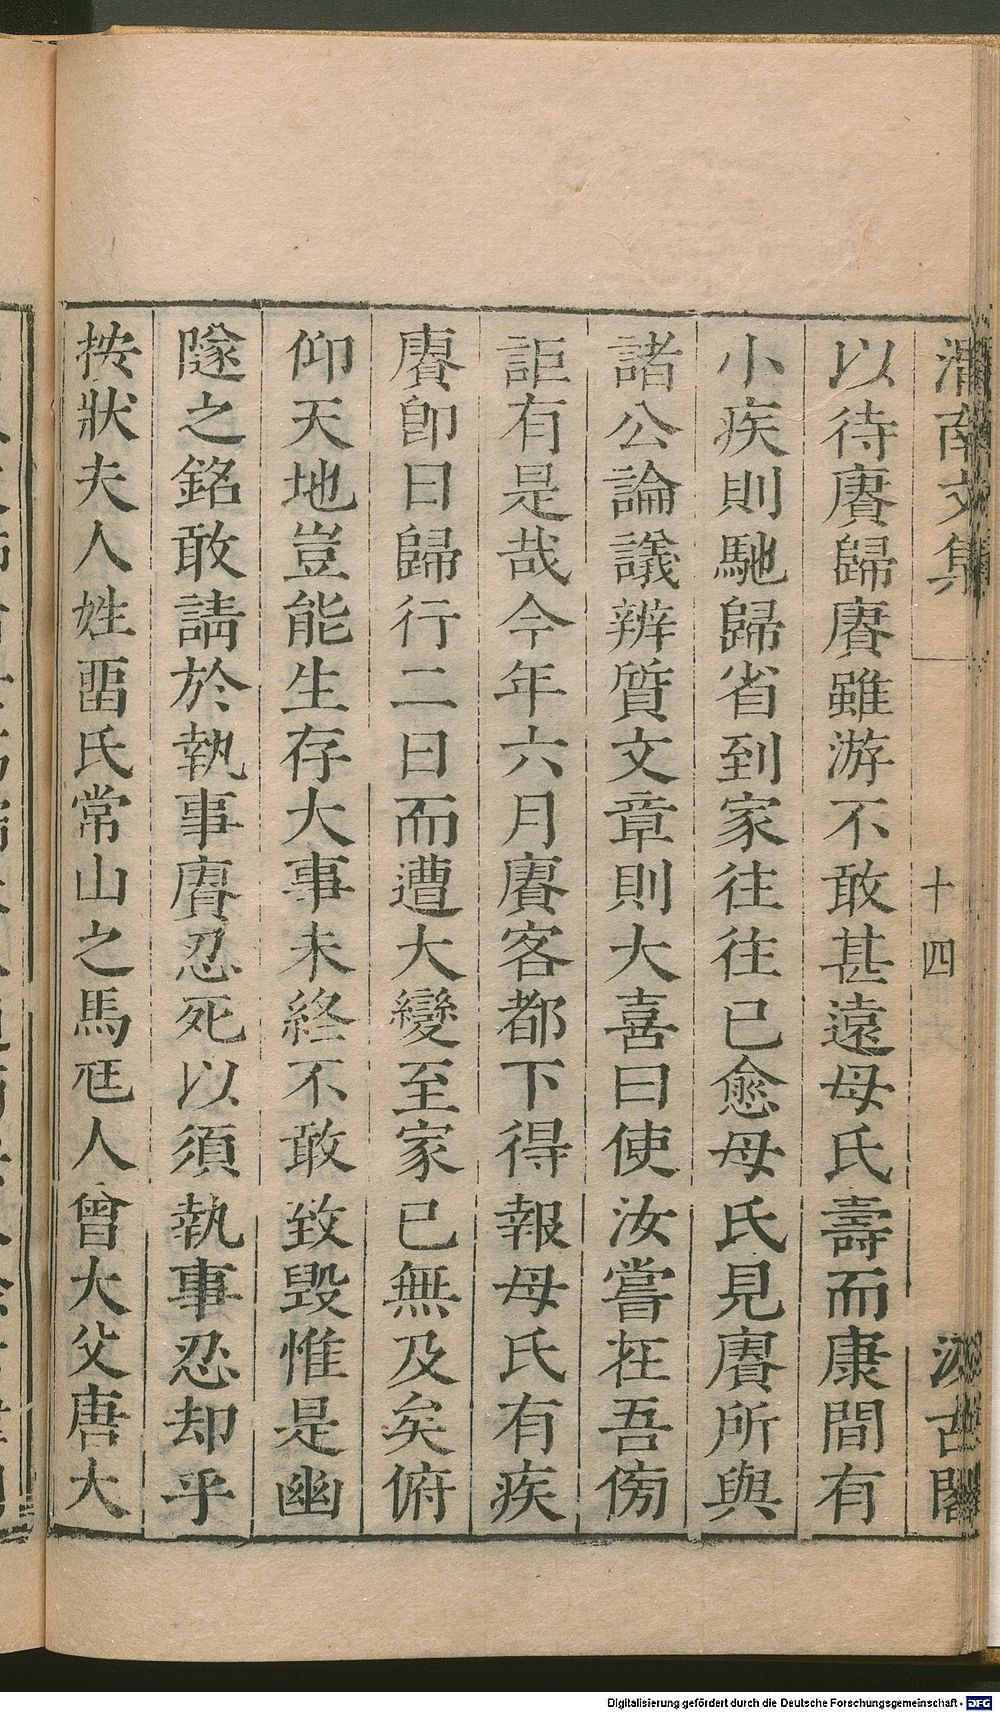 渭南文集 十四 汲古閣
以待賡歸賡雖游不敢甚遠母氏壽而康間有
小疾則馳歸省到家往往已愈母氏見賡所與
諸公論議辨質文章則大喜曰使汝嘗在吾傍
詎有是哉今年六月賡客都下得報母氏有疾
賡卽日歸行二日而遭大變至家已無及矣俯
仰天地豈能生存大事未終不敢致毀惟是幽
隧之銘敢請於執事賡忍死以須執事忍却乎
按狀夫人姓畱氏常山之馬尫人曾大父唐大
Digitalisierung gefördert durch die Deutsche Forschungsgemeinschaft - DFG